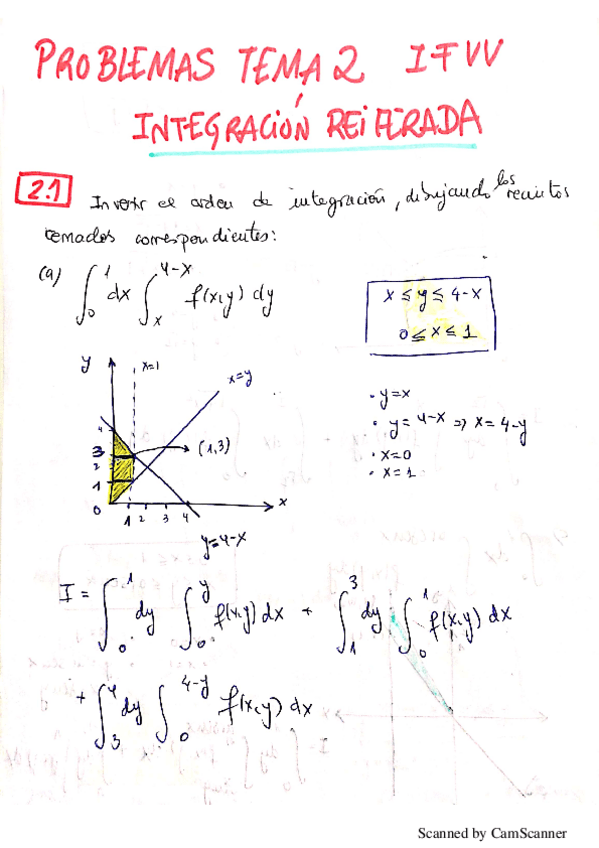 PROBLEMAS TEMA 2 IFVV
INTEGRACIÓN REITERADA
2.1 Invertir el orden de integración, dibujando los recintos
cerrados correspondientes:
(a) ∫₀¹ dx ∫ₓ^{4-x} f(x,y) dy
x ≤ y ≤ 4-x
0 ≤ x ≤ 1
y
x=1
x=y
4
3
2
1
0
(1,3)
1 2 3 4
x
y=4-x
· y=x
· y=4-x => x=4-y
· x=0
· x=1
I = ∫₀¹ dy ∫₀^y f(x,y) dx + ∫₁³ dy ∫₀¹ f(x,y) dx
+ ∫₃⁴ dy ∫₀^{4-y} f(x,y) dx
Scanned by CamScanner